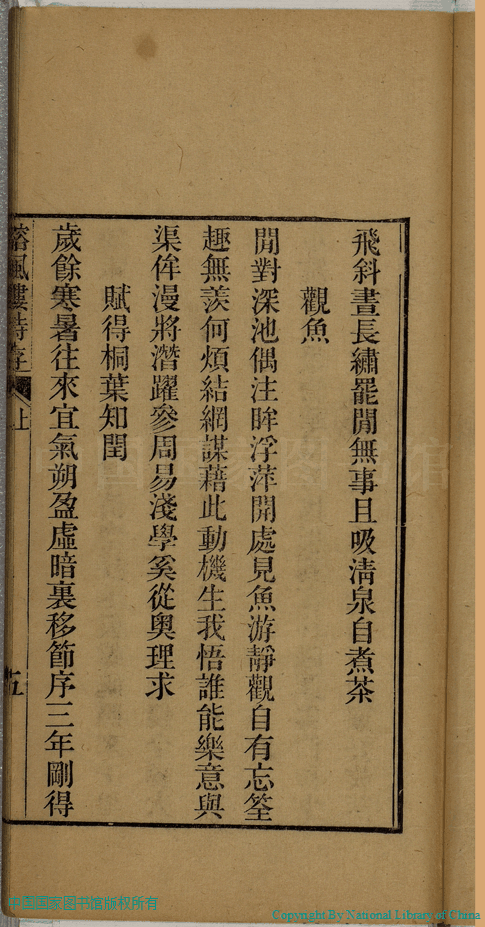 飛斜晝長繡罷閒無事且吸淸泉自煮茶
觀魚
閒對深池偶注眸浮萍開處見魚游靜觀自有忘筌
趣無羨何煩結網謀藉此動機生我悟誰能樂意與
渠侔漫將潛躍參周易淺學奚從奧理求
賦得桐葉知閏
歲餘寒暑往來宜氣朔盈虛暗裏移節序三年剛得
樓詩存 上 五
中国国家图书馆版权所有
Copyright By National Library of China